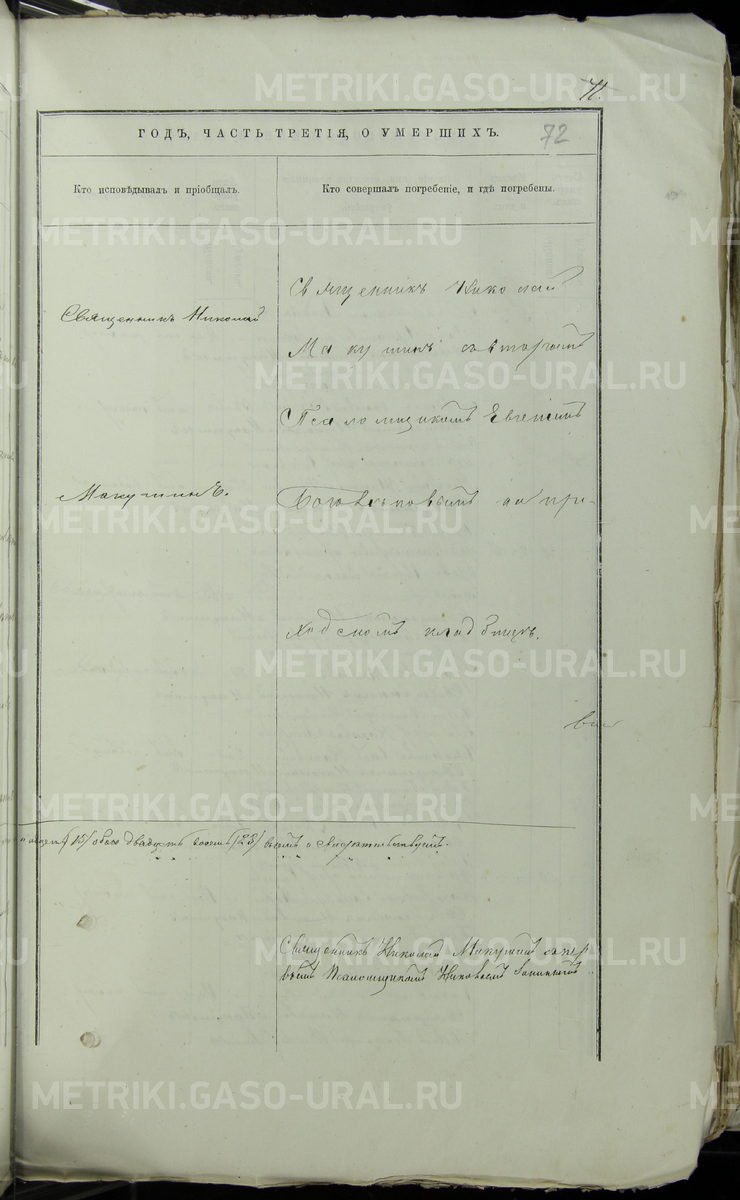 71.
ГОДЪ, ЧАСТЬ ТРЕТІЯ, О УМЕРШИХЪ.
72
Кто исповѣдывалъ и пріобщалъ.
Кто совершалъ погребеніе, и гдѣ погребены.
Священникъ Николай
Макушинъ.
Священникъ Николай
Макушинъ со вторымъ
Псаломщикомъ Евгеніемъ
на при-
ходскомъ кладбищѣ.
обоего двадцать восемь /28/
Священникъ Николай Макушинъ съ пер
вымъ Псаломщикомъ
METRIKI.GASO-URAL.RU